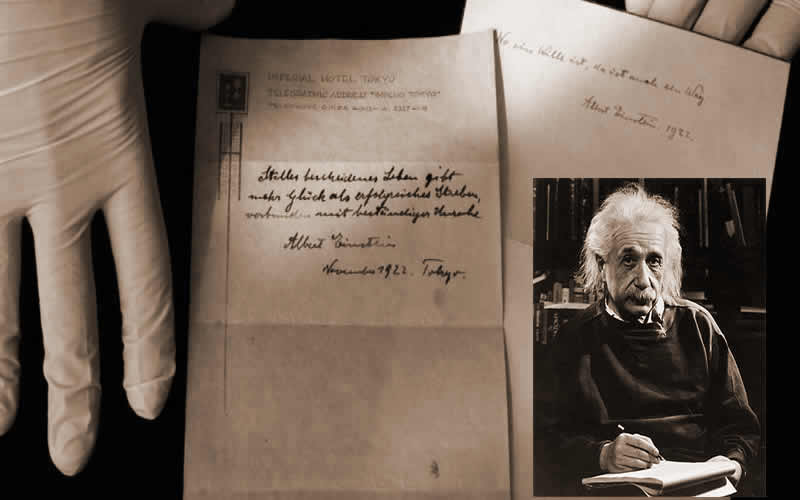 IMPERIAL HOTEL TOKYO
TELEGRAPHIC ADDRESS "IMPEHO TOKYO"
Stilles bescheidenes Leben gibt
mehr Glück als erfolgreiches Streben,
verbunden mit beständiger Unruhe
Albert Einstein
November 1922. Tokyo.
Wo ein Wille ist, da ist auch ein Weg
Albert Einstein. 1922.